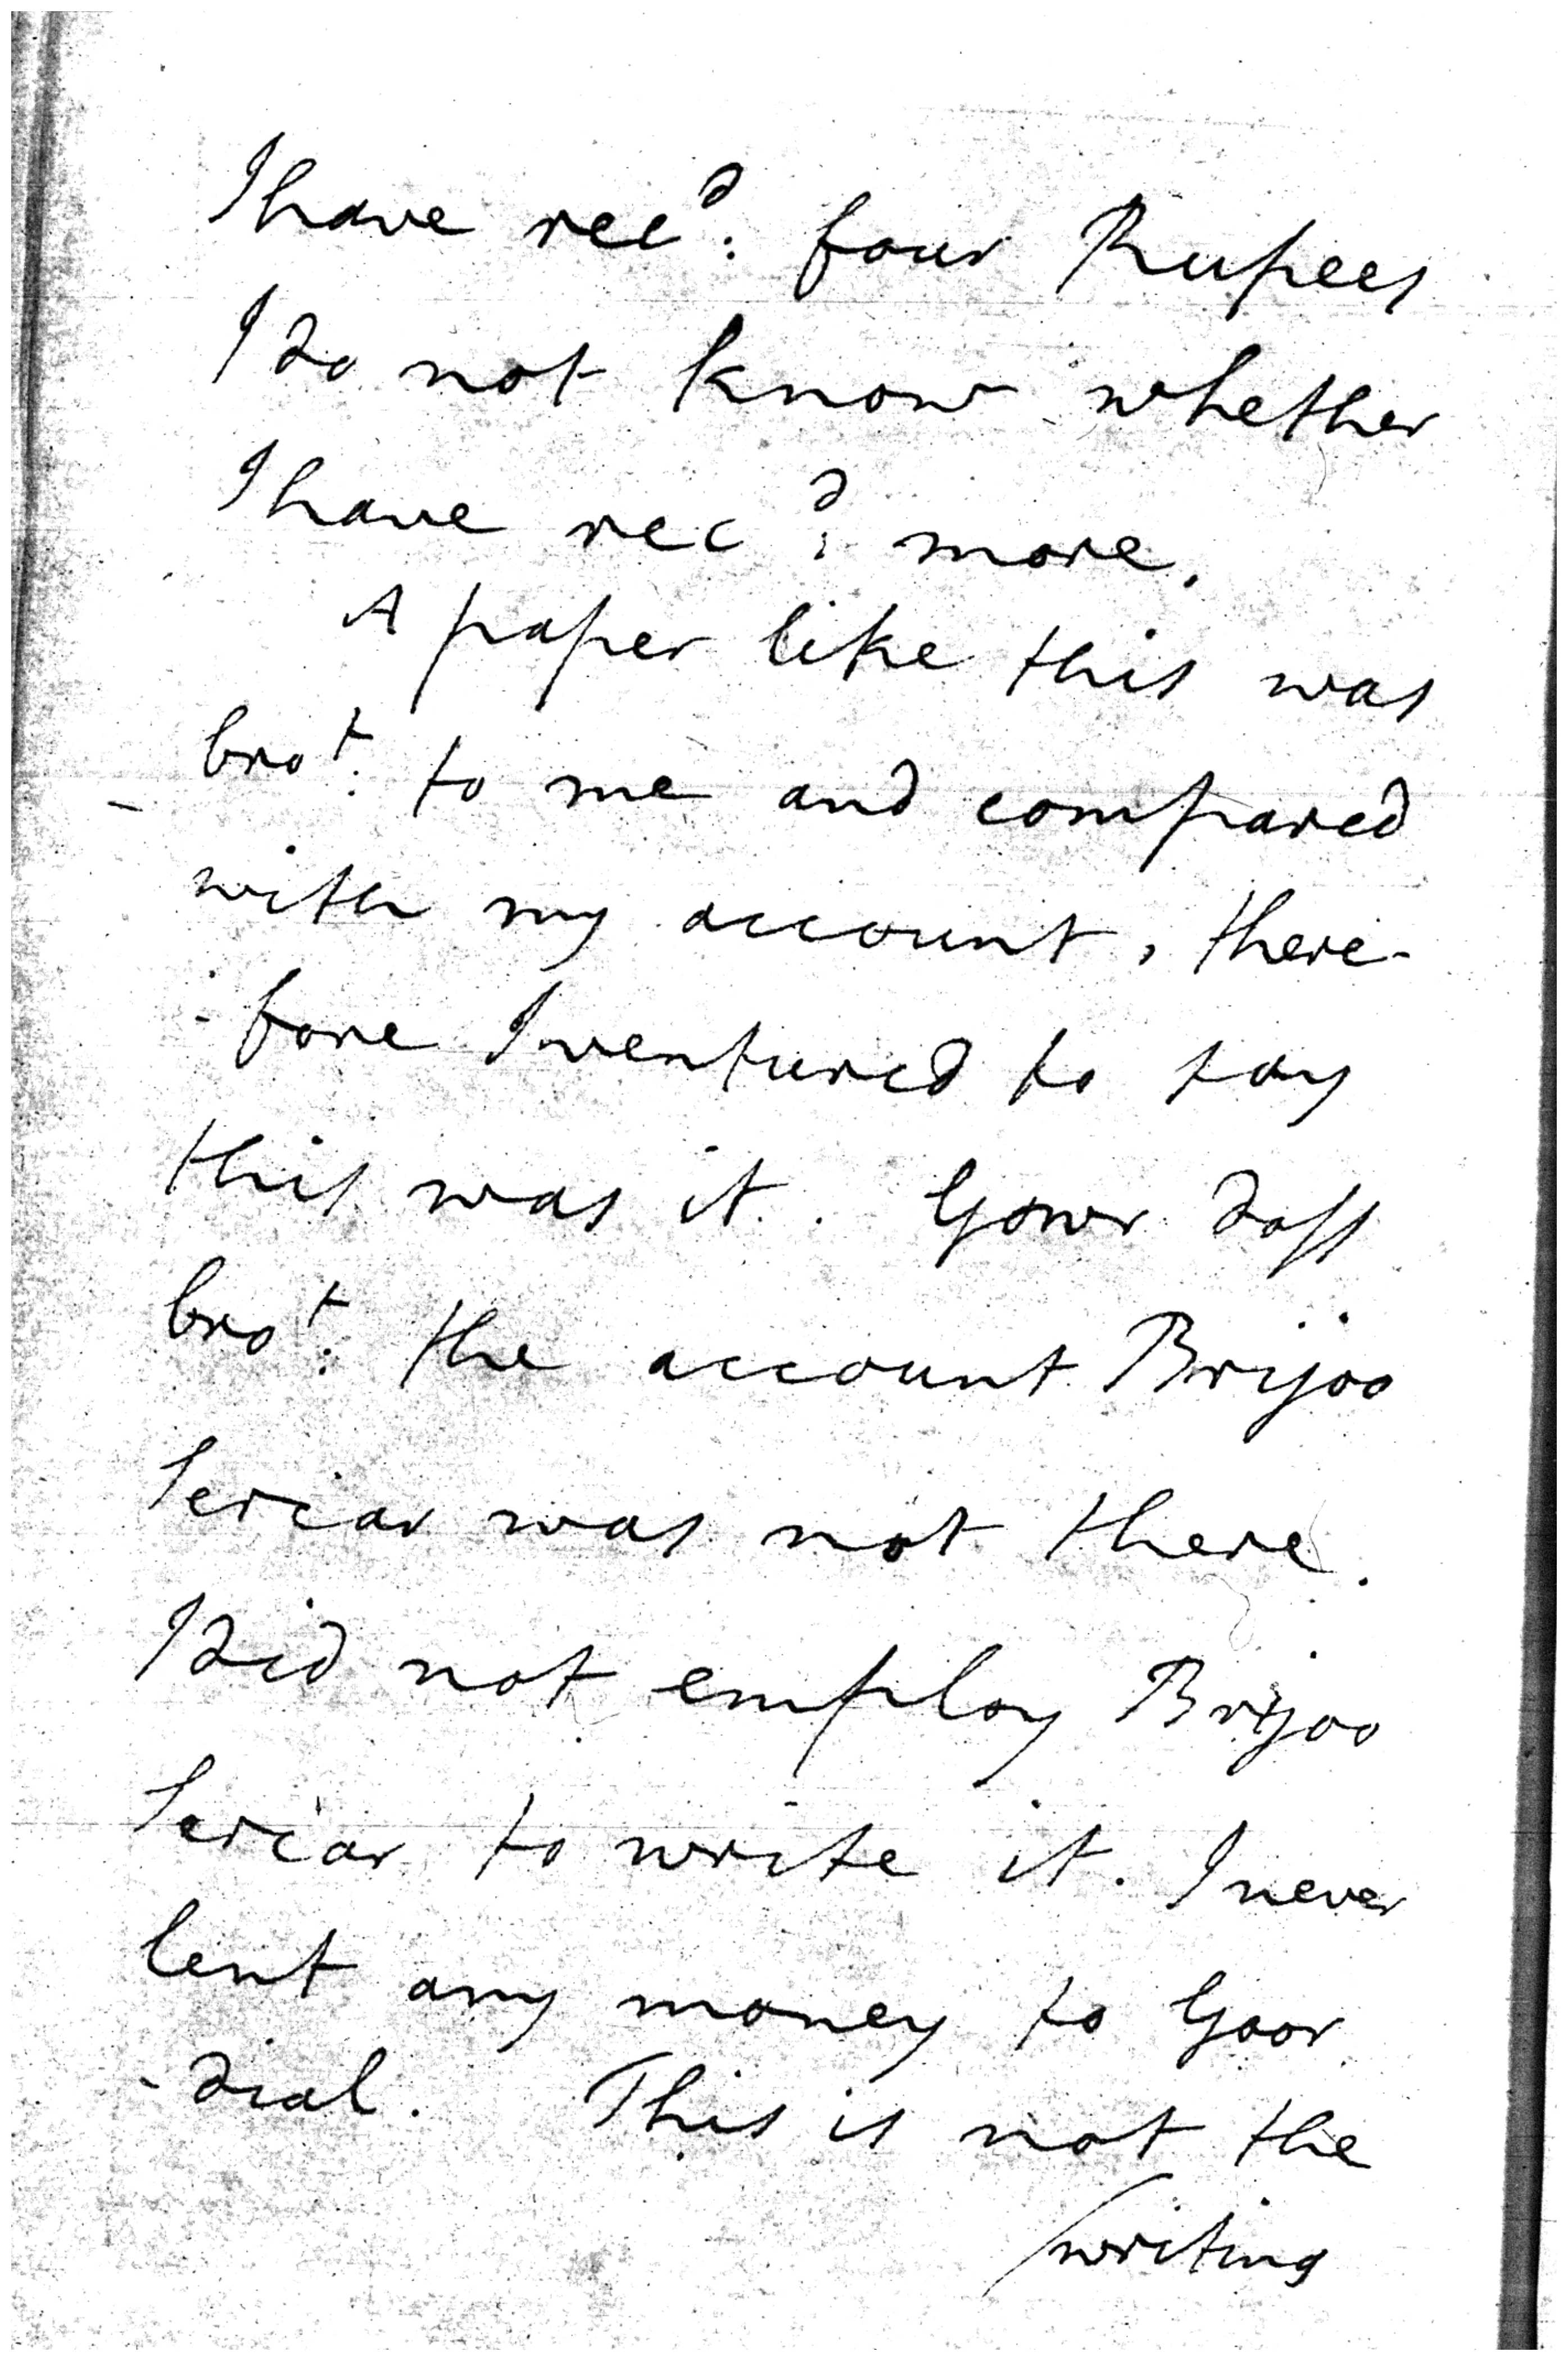 I have rec^d: four Rupees
I do not know whether
I have rec^d: more.
A paper like this was
bro^t: to me and compared
with my account, there-
-fore I ventured to say
this was it. Gowr dass
bro^t: the account Brijoo
Sercar was not there.
I did not employ Brijoo
Sercar to write it. I never
lent any money to Goor
-dial. This is not the
writing